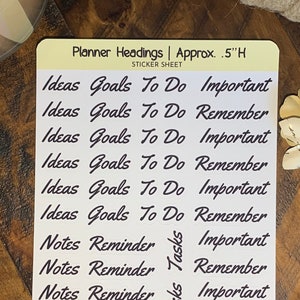 Planner Headings | Approx. .5"H
STICKER SHEET
Ideas Goals To Do Important
Ideas Goals To Do Remember
Ideas Goals To Do Important
Ideas Goals To Do Remember
Ideas Goals To Do Important
Ideas Goals To Do Remember
Notes Reminder Tasks Important
Notes Reminder Remember
Notes Reminder Important